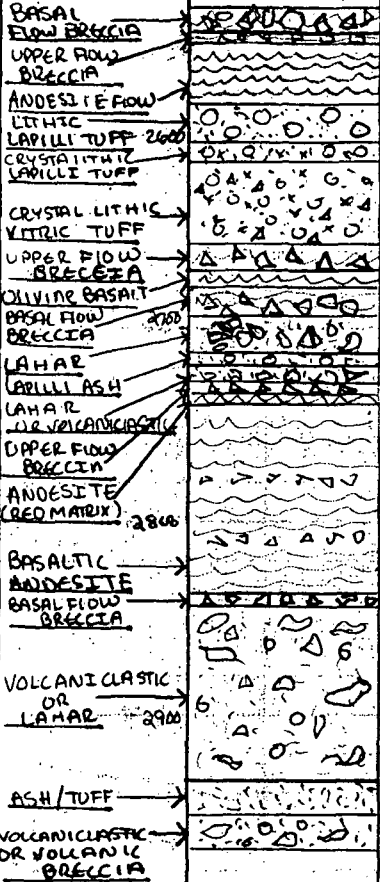 BASAL
FLOW BRECCIA
UPPER FLOW
BRECCIA
ANDESITE FLOW
LITHIC
LAPILLI TUFF 2600
CRYSTALITHIC
LAPILLI TUFF
CRYSTAL LITHIC
VITRIC TUFF
UPPER FLOW
BRECCIA
OLIVINE BASALT
BASAL FLOW 2700
BRECCIA
LAHAR
LAPILLI ASH
LAHAR
OR VOLCANICLASTIC
UPPER FLOW
BRECCIA
ANDESITE
(RED MATRIX) 2800
BASALTIC
ANDESITE
BASAL FLOW
BRECCIA
VOLCANICLASTIC
OR
LAHAR 2900
ASH/TUFF
VOLCANICLASTIC
OR VOLCANIC
BRECCIA